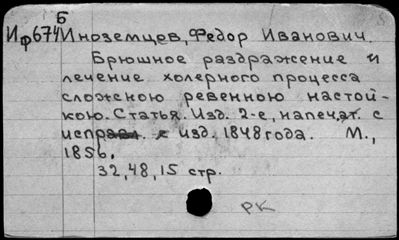 Б
Иф674 Иноземцев, Федор Иванович.
Брюшное раздражение и
лечение холерного процесса
сложною ревенною настой-
кою. Статья. Изд. 2-е, напечат. с
исправл. с изд. 1848 года. М.,
1856.
32, 48, 15 стр.
РК